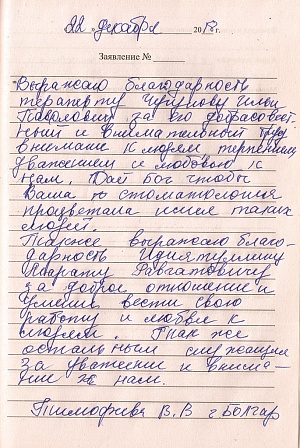 22 декабря 2018 г.
Заявление №
Выражаю благодарность
терапевту Илье
Павловичу за его добросовест-
ный и внимательный труд
внимание к людям терпением
уважением и любовью к
нам. Дай Бог чтобы
Ваша стоматология
процветала имея таких
людей.
Также выражаю благо-
дарность Идиятуллину
Равгатовичу
за доброе отношение и
умение вести свою
работу и любви к
людям. Так же
остальным служащим
за уважение и внима-
ние к нам.
Тимофеева В.В г. Болгар